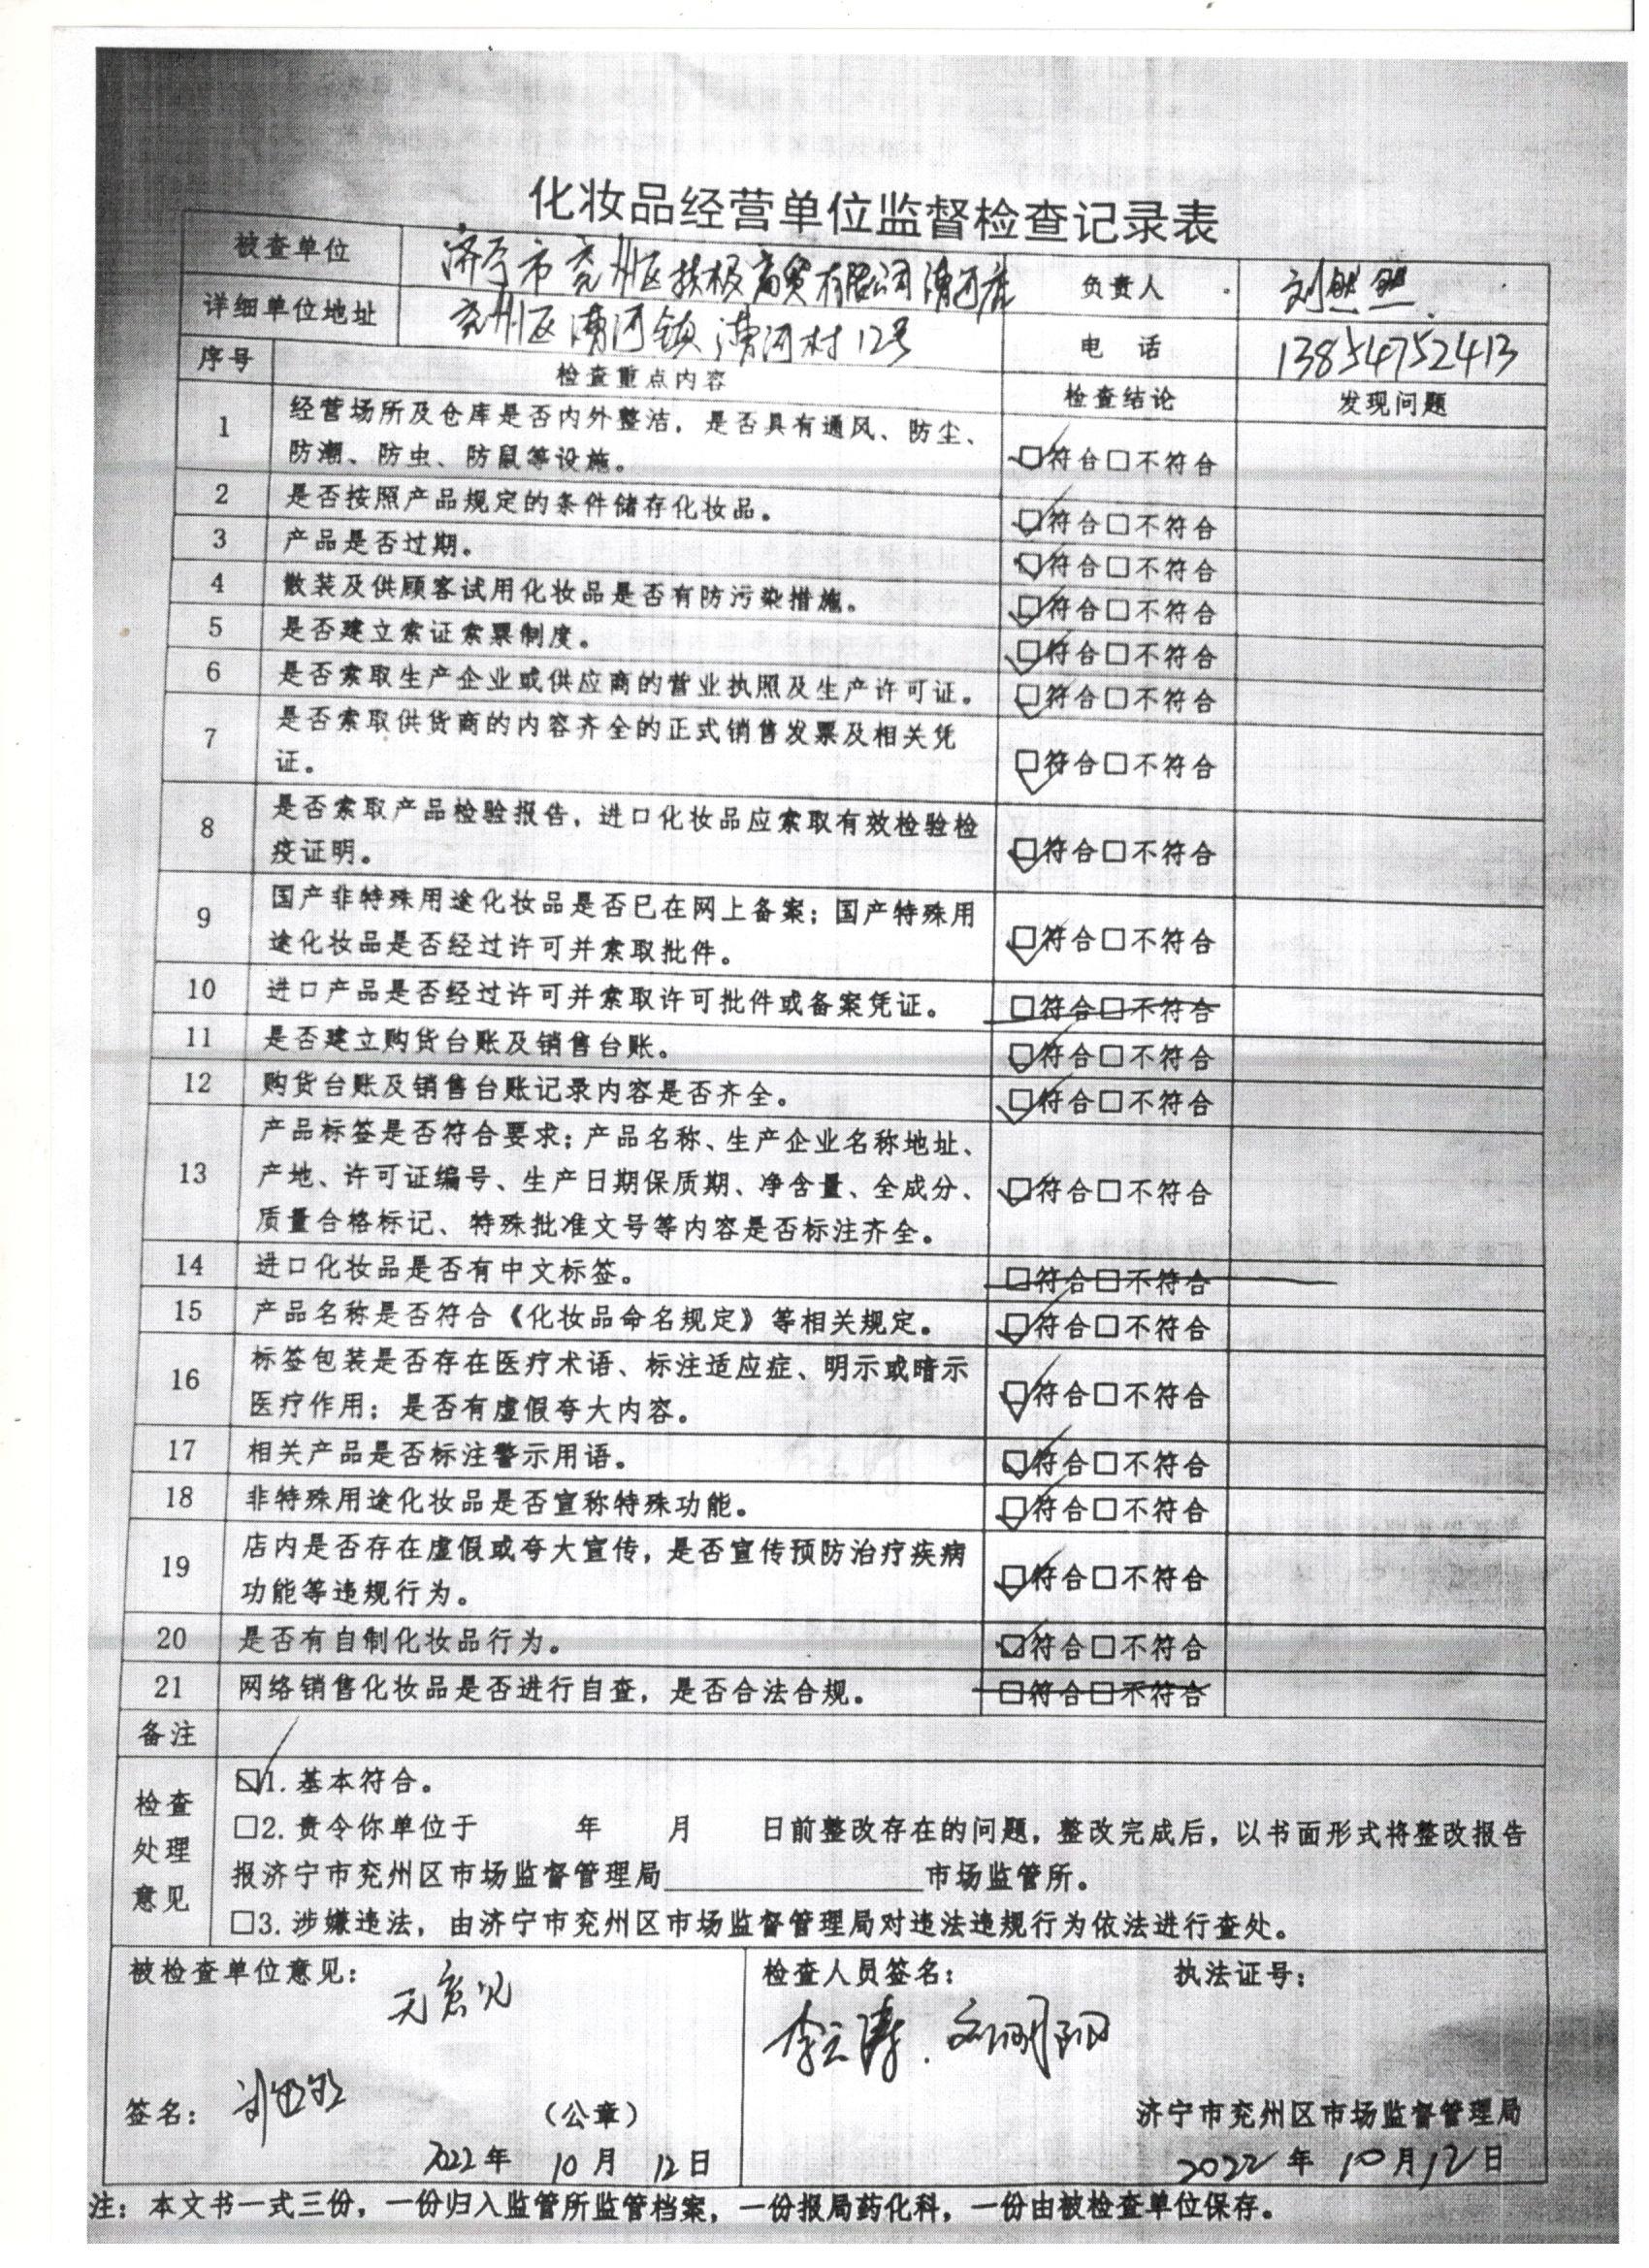 化妆品经营单位监督检查记录表
被查单位 济宁市兖州区扶极商贸有限公司漕河店 负责人 刘
详细单位地址 兖州区漕河镇漕河村12号 电 话 13854752413
序号 检查重点内容 检查结论 发现问题
1 经营场所及仓库是否内外整洁,是否具有通风、防尘、
防潮、防虫、防鼠等设施。 ☑符合□不符合
2 是否按照产品规定的条件储存化妆品。 ☑符合□不符合
3 产品是否过期。 ☑符合□不符合
4 散装及供顾客试用化妆品是否有防污染措施。 ☑符合□不符合
5 是否建立索证索票制度。 ☑符合□不符合
6 是否索取生产企业或供应商的营业执照及生产许可证。 ☑符合□不符合
7 是否索取供货商的内容齐全的正式销售发票及相关凭
证。 ☑符合□不符合
8 是否索取产品检验报告,进口化妆品应索取有效检验检
疫证明。 ☑符合□不符合
9 国产非特殊用途化妆品是否已在网上备案;国产特殊用
途化妆品是否经过许可并索取批件。 ☑符合□不符合
10 进口产品是否经过许可并索取许可批件或备案凭证。 □符合□不符合
11 是否建立购货台账及销售台账。 ☑符合□不符合
12 购货台账及销售台账记录内容是否齐全。 ☑符合□不符合
13 产品标签是否符合要求;产品名称、生产企业名称地址、
产地、许可证编号、生产日期保质期、净含量、全成分、
质量合格标记、特殊批准文号等内容是否标注齐全。 ☑符合□不符合
14 进口化妆品是否有中文标签。 □符合□不符合
15 产品名称是否符合《化妆品命名规定》等相关规定。 ☑符合□不符合
16 标签包装是否存在医疗术语、标注适应症、明示或暗示
医疗作用;是否有虚假夸大内容。 ☑符合□不符合
17 相关产品是否标注警示用语。 ☑符合□不符合
18 非特殊用途化妆品是否宣称特殊功能。 ☑符合□不符合
19 店内是否存在虚假或夸大宣传,是否宣传预防治疗疾病
功能等违规行为。 ☑符合□不符合
20 是否有自制化妆品行为。 ☑符合□不符合
21 网络销售化妆品是否进行自查,是否合法合规。 □符合□不符合
备注
检查处理意见
☑1. 基本符合。
□2. 责令你单位于 年 月 日前整改存在的问题,整改完成后,以书面形式将整改报告
报济宁市兖州区市场监督管理局____________市场监管所。
□3. 涉嫌违法,由济宁市兖州区市场监督管理局对违法违规行为依法进行查处。
被检查单位意见: 检查人员签名: 执法证号:
无意见
李云涛
签名: 刘 (公章) 济宁市兖州区市场监督管理局
2022年 10月 12日 2022年 10月12日
注:本文书一式三份,一份归入监管所监管档案,一份报局药化科,一份由被检查单位保存。